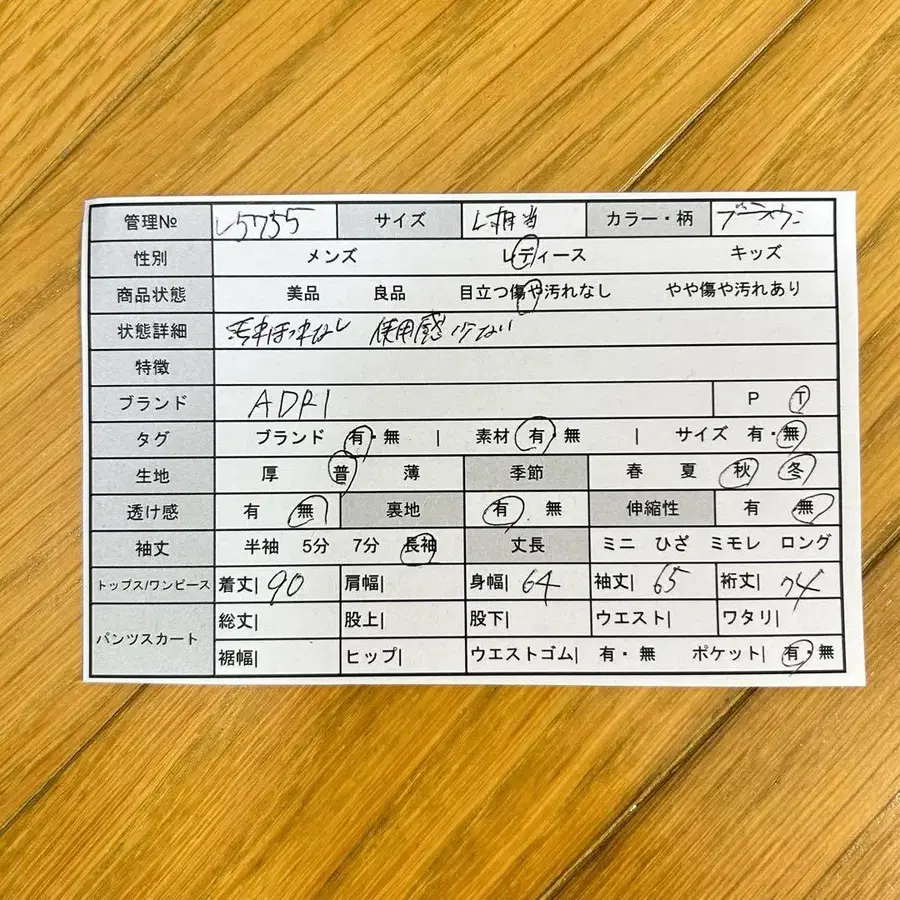 管理№ L5755 サイズ L相当 カラー・柄 ブラウン
性別 メンズ レディース キッズ
商品状態 美品 良品 目立つ傷や汚れなし やや傷や汚れあり
状態詳細 汚れほつれなし 使用感少ない
特徴
ブランド ADRI P T
タグ ブランド 有・無 | 素材 有・無 | サイズ 有・無
生地 厚 普 薄 季節 春 夏 秋 冬
透け感 有 無 裏地 有 無 伸縮性 有 無
袖丈 半袖 5分 7分 長袖 丈長 ミニ ひざ ミモレ ロング
トップス/ワンピース 着丈| 90 肩幅| 身幅| 64 袖丈| 65 裄丈| 74
パンツスカート 総丈| 股上| 股下| ウエスト| ワタリ|
裾幅| ヒップ| ウエストゴム| 有・無 ポケット| 有・無